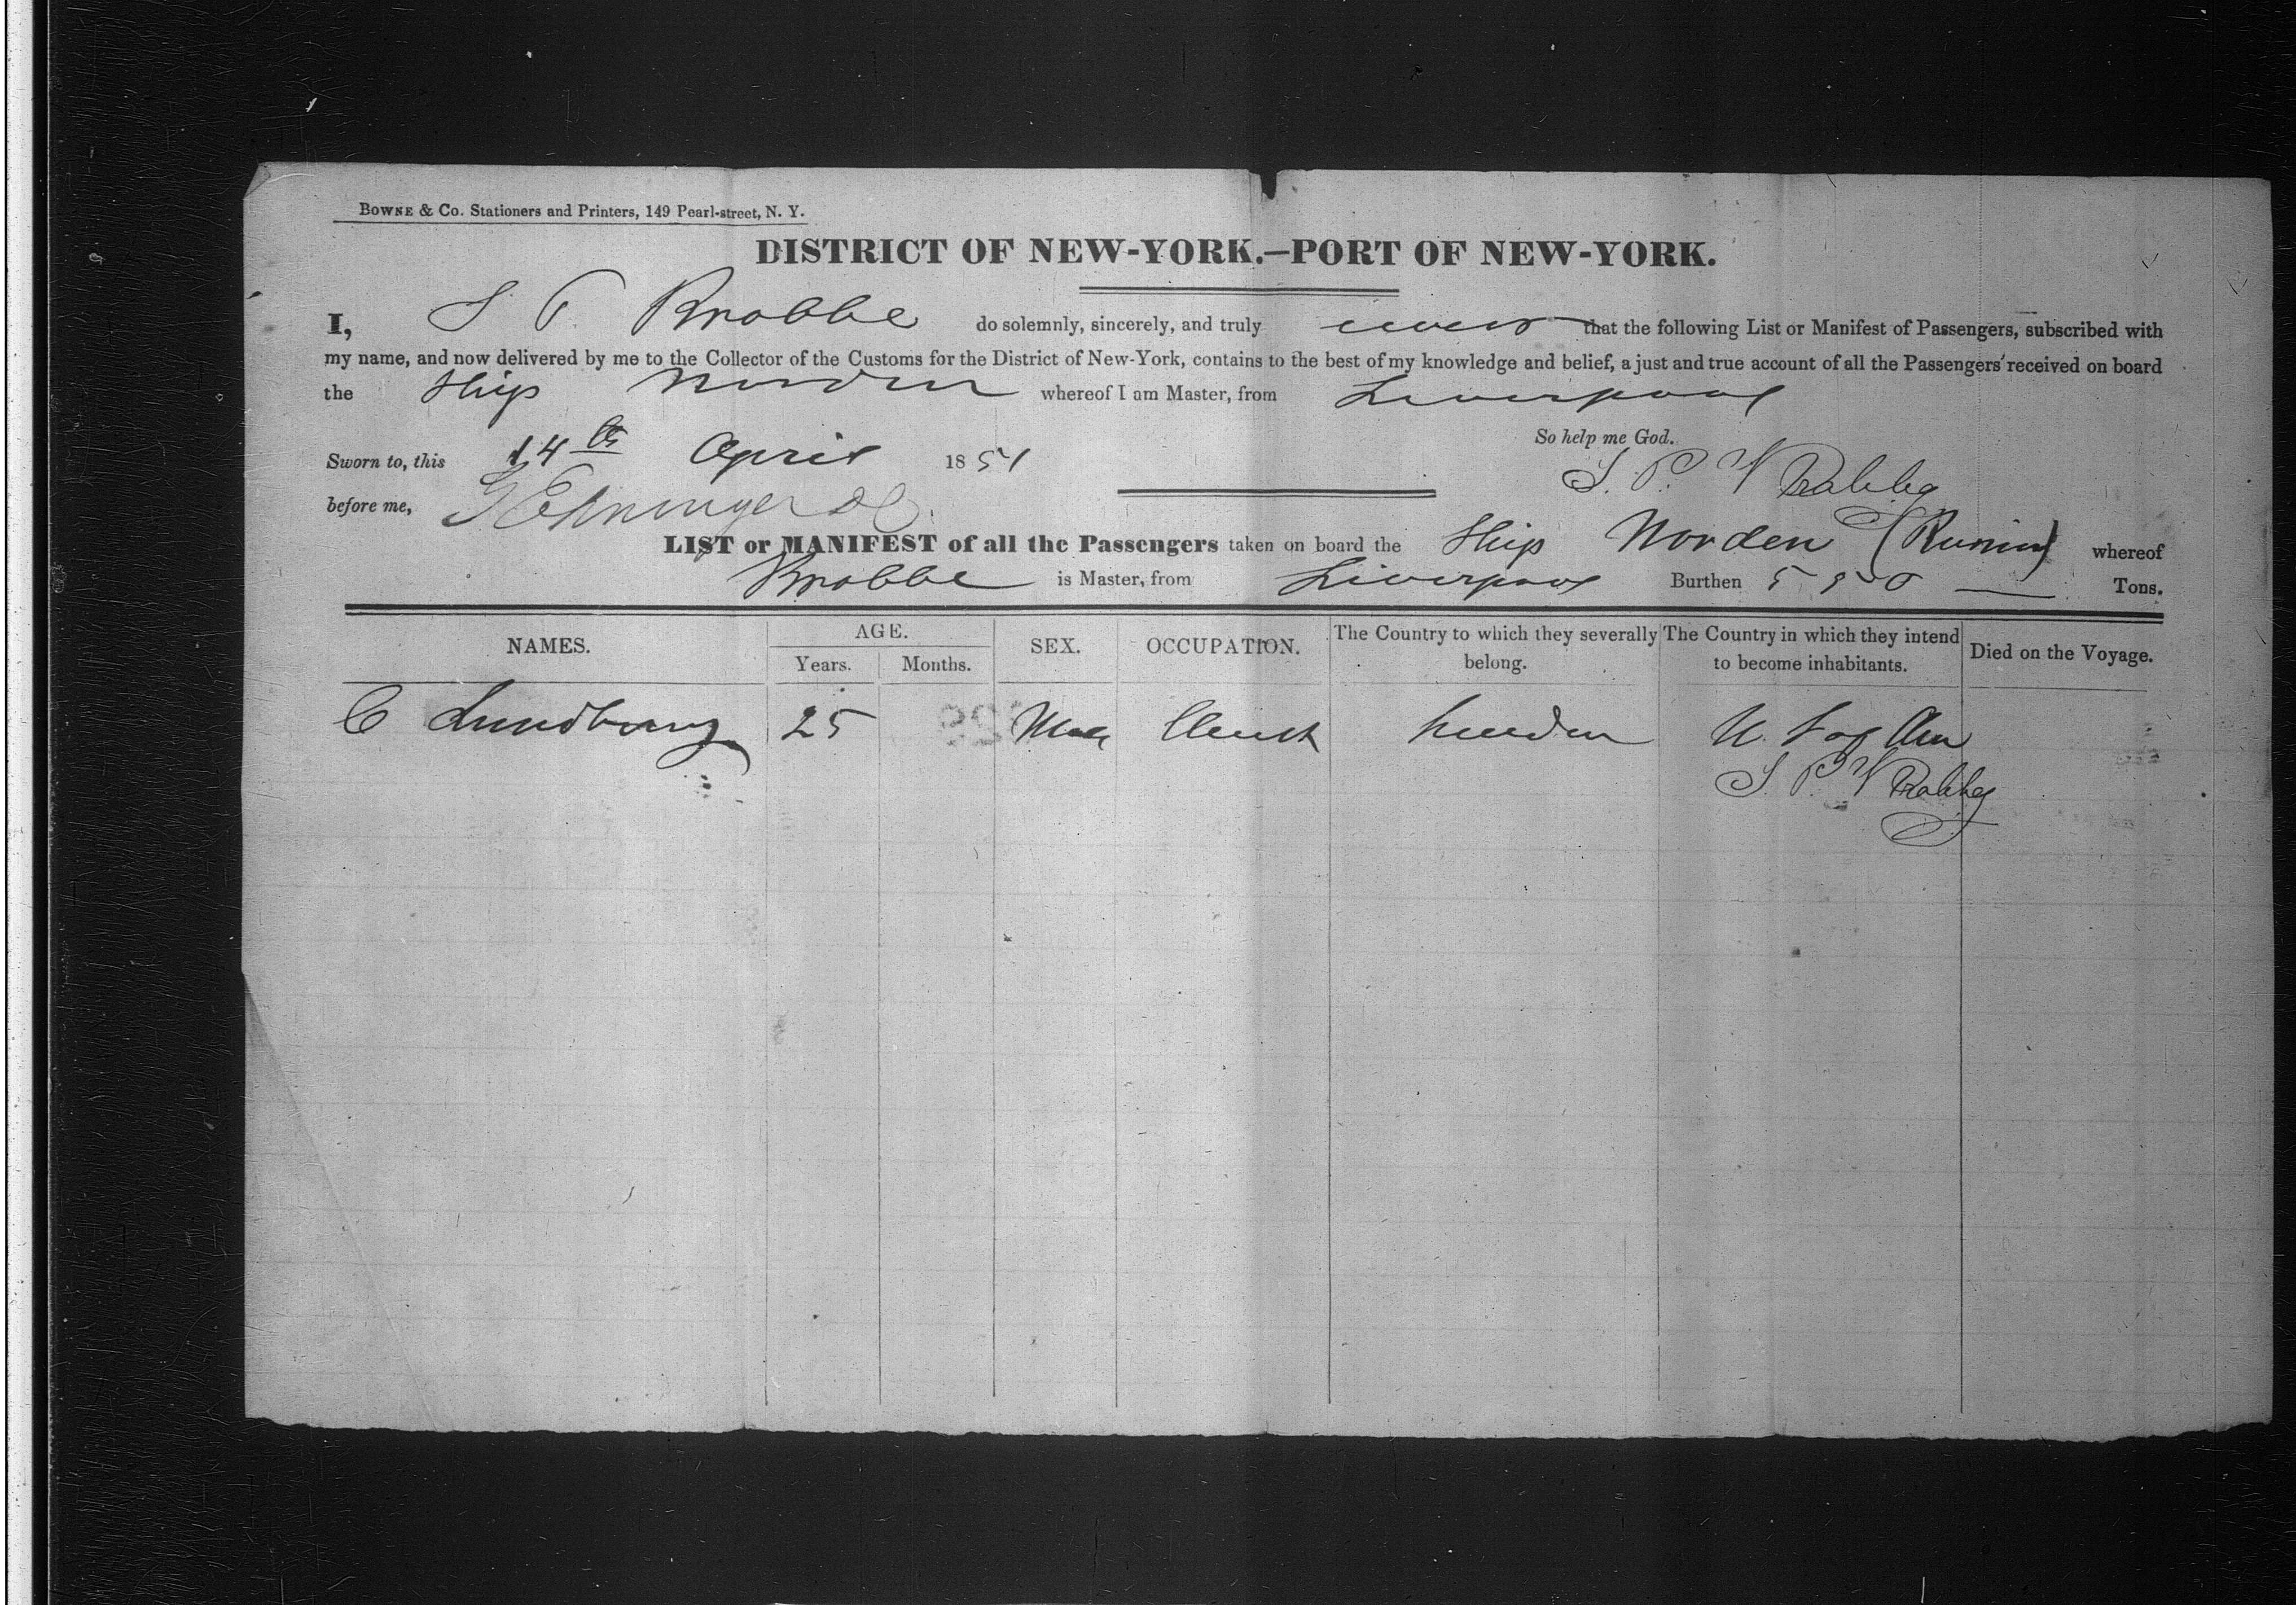 BOWNE & Co. Stationers and Printers, 149 Pearl-street, N. Y.
DISTRICT OF NEW-YORK.—PORT OF NEW-YORK.
I, S P Knabbe do solemnly, sincerely, and truly swear that the following List or Manifest of Passengers, subscribed with
my name, and now delivered by me to the Collector of the Customs for the District of New-York, contains to the best of my knowledge and belief, a just and true account of all the Passengers received on board
the Ship Norden whereof I am Master, from Liverpool
So help me God.
Sworn to, this 14th April 1851
S. P.
before me,
LIST or MANIFEST of all the Passengers taken on board the Ship Norden whereof
Knabbe is Master, from Liverpool Burthen 550 — Tons.
NAMES. AGE. Years. Months. SEX. OCCUPATION. The Country to which they severally belong. The Country in which they intend to become inhabitants. Died on the Voyage.
C Lundberg 25 Male Clerk Sweden U. S of Am
S. P.